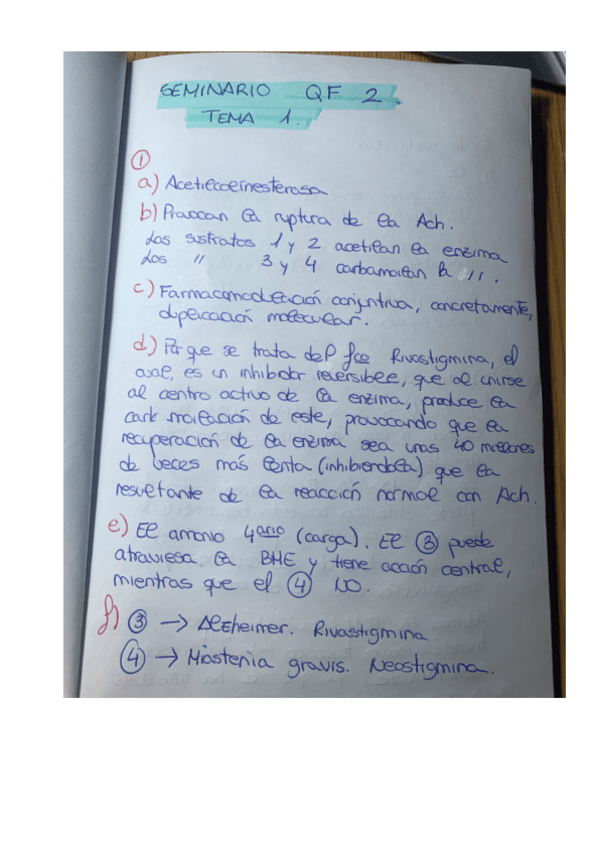 SEMINARIO QF 2.
TEMA 1.
①
a) Acetilcolinesterasa
b) Provocan la ruptura de la Ach.
Los sustratos 1 y 2 acetilan la enzima
Los " 3 y 4 carbamoilan la ".
c) Farmacomodulación conjuntiva, concretamente,
duplicación molecular.
d) Porque se trata del fco Rivastigmina, el
cual, es un inhibidor reversible, que al unirse
al centro activo de la enzima, produce la
carbamoilación de este, provocando que la
recuperación de la enzima sea unas 40 millones
de veces más lenta (inhibiendola) que la
resultante de la reacción normal con Ach.
e) El amonio 4ario (carga). El ③ puede
atraviesa la BHE y tiene acción central,
mientras que el ④ NO.
f) ③ → Alzheimer. Rivastigmina
④ → Miastenia gravis. Neostigmina.